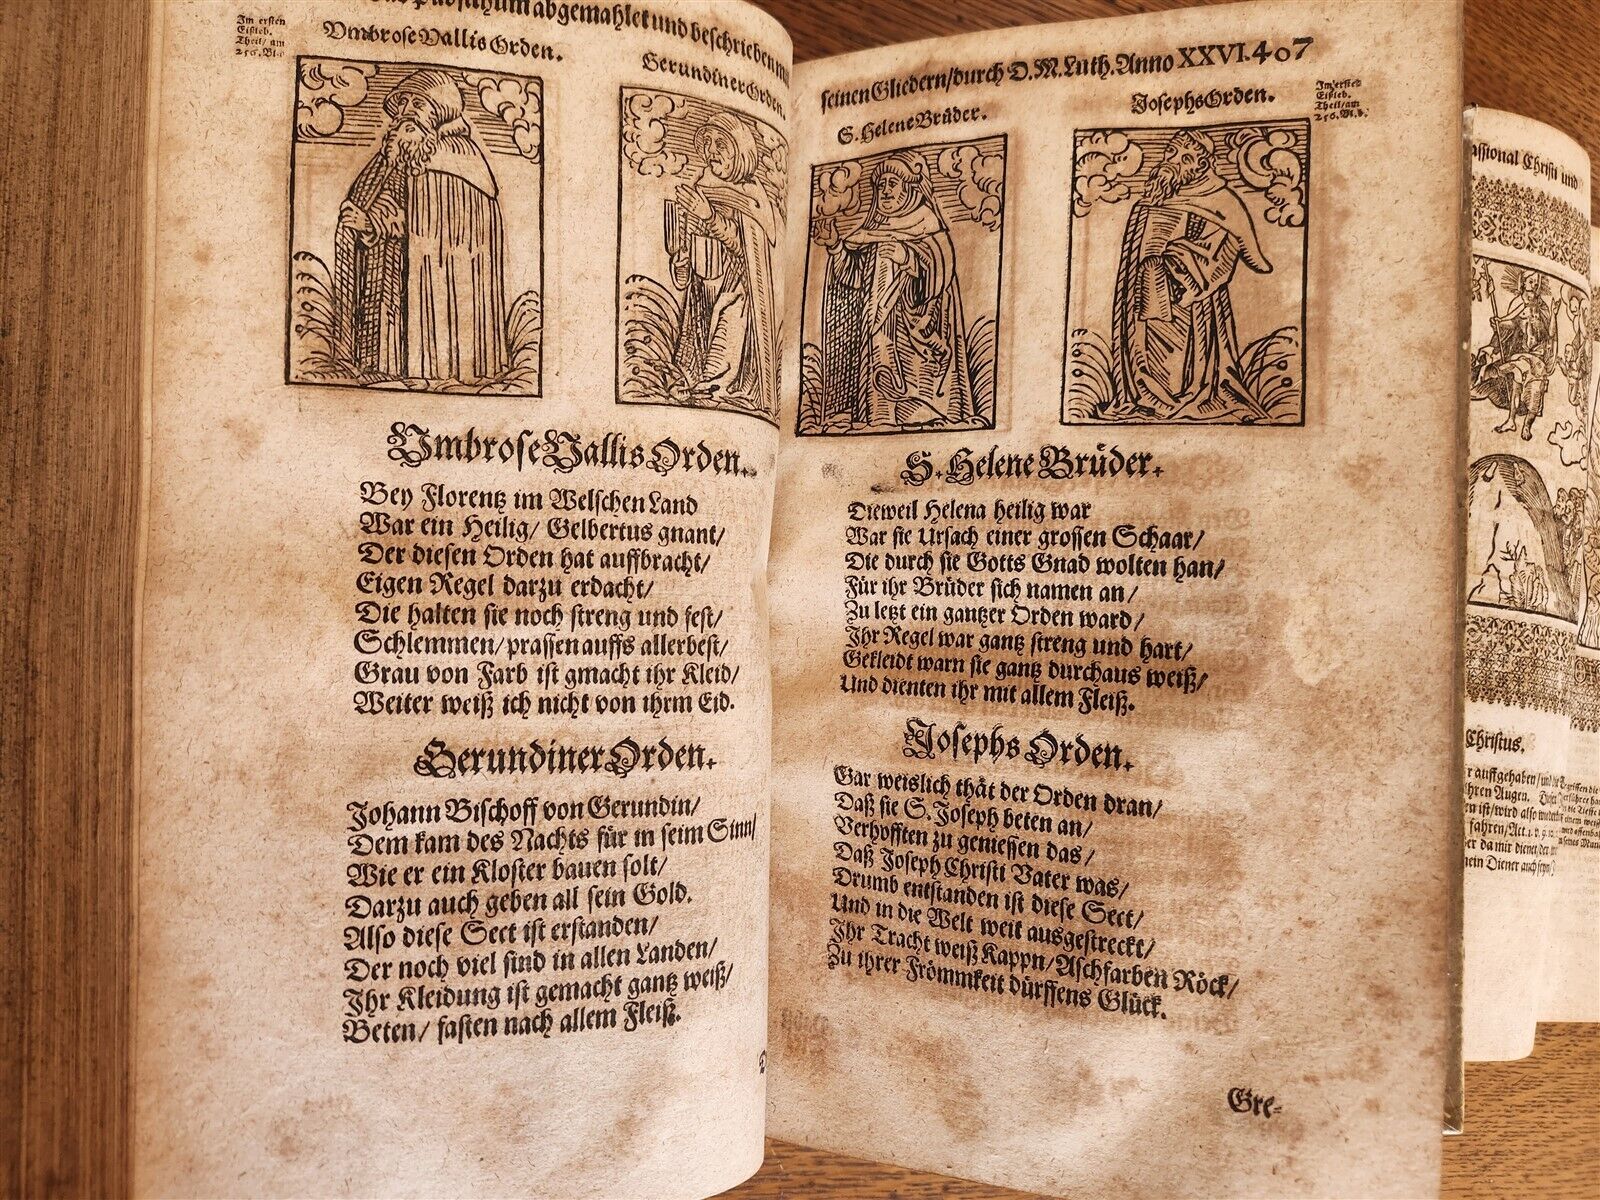 abgemahlet und beschrieben
Im ersten
Eißleb.
Theil/ am
256. Bl.
Vmbrose Vallis Orden.
Gerundiner Orden.
Vmbrose Vallis Orden.
Bey Florentz im Welschen Land
War ein Heilig/ Gelbertus gnant/
Der diesen Orden hat auffbracht/
Eigen Regel darzu erdacht/
Die halten sie noch streng und fest/
Schlemmen/ prassen auffs allerbest/
Grau von Farb ist gmacht ihr Kleid/
Weiter weiß ich nicht von ihrm Eid.
Gerundiner Orden.
Johann Bischoff von Gerundin/
Dem kam des Nachts für in seim Sinn/
Wie er ein Kloster bauen solt/
Darzu auch geben all sein Gold.
Also diese Sect ist erstanden/
Der noch viel sind in allen Landen/
Ihr Kleidung ist gemacht gantz weiß/
Beten/ fasten nach allem Fleiß.
seinen Gliedern/ durch D. M. Luth. Anno XXVI. 407
Im ersten
Eißleb.
Theil/ am
256. Bl. b.
S. Helene Brüder.
Josephs Orden.
S. Helene Brüder.
Dieweil Helena heilig war
War sie Ursach einer grossen Schaar/
Die durch sie Gotts Gnad wolten han/
Für ihr Brüder sich namen an/
Zu letzt ein gantzer Orden ward/
Ihr Regel war gantz streng und hart/
Gekleidt warn sie gantz durchaus weiß/
Und dienten ihr mit allem Fleiß.
Josephs Orden.
Gar weislich thät der Orden dran/
Daß sie S. Joseph beten an/
Verhofften zu geniessen das/
Daß Joseph Christi Vater was/
Drumb entstanden ist diese Sect/
Und in die Welt weit ausgestreckt/
Ihr Tracht weiß Kappn/ Aschfarben Röck/
Zu ihrer Frömmkeit dürffens Glück.
Gre-
Christi und
Christus.
r auffgehaben/
hren Augen.
en ist/ wird also
fahren/ Act. 1.
er da mir dienet/ der
mein Diener auch seyn/